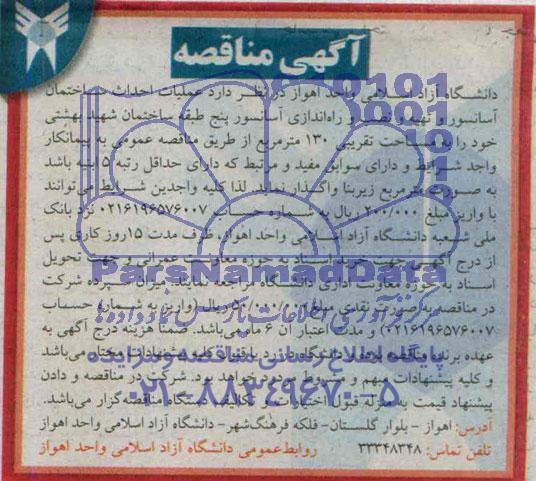 آگهی مناقصه
دانشگاه آزاد اسلامی واحد اهواز در نظر دارد عملیات احداث ساختمان
آسانسور و تهیه و نصب و راه‌اندازی آسانسور پنج طبقه ساختمان شهید بهشتی
خود را به مساحت تقریبی ۱۳۰ مترمربع از طریق مناقصه عمومی به پیمانکار
واجد شرایط و دارای سوابق مفید و مرتبط که دارای حداقل رتبه ۵ ابنیه باشد
به صورت مترمربع زیربنا واگذار نماید. لذا کلیه واجدین شرایط می‌توانند
با واریز مبلغ ۲۰۰/۰۰۰ ریال به شماره حساب ۰۲۱۶۱۹۶۵۷۶۰۰۷ نزد بانک
ملی شعبه دانشگاه آزاد اسلامی واحد اهواز، ظرف مدت ۱۵روز کاری پس
از درج آگهی جهت خرید اسناد به حوزه معاونت عمرانی و جهت تحویل
اسناد به حوزه معاونت اداری دانشگاه مراجعه نمایند. میزان سپرده شرکت
در مناقصه به صورت نقدی مبلغ ریال (واریز به شماره حساب
۰۲۱۶۱۹۶۵۷۶۰۰۷) و مدت اعتبار آن ۶ ماه می‌باشد. ضمناً هزینه درج آگهی به
عهده برنده مناقصه بوده و دانشگاه در رد یا قبول کلیه پیشنهادات مختار می‌باشد
و کلیه پیشنهادات مبهم و مشروط مردود خواهد بود. شرکت در مناقصه و دادن
پیشنهاد قیمت به منزله قبول اختیارات و تکالیف دستگاه مناقصه‌گزار می‌باشد.
آدرس: اهواز - بلوار گلستان- فلکه فرهنگ‌شهر- دانشگاه آزاد اسلامی واحد اهواز
تلفن تماس: ۳۳۳۴۸۳۴۸ روابط‌عمومی دانشگاه آزاد اسلامی واحد اهواز
ParsNamadData
مرکز فن آوری اطلاعات پارس نماد داده ها
پایگاه اطلاع رسانی مناقصه و مزایده
۰۲۱-۸۸۳۴۹۶۷۰-۵